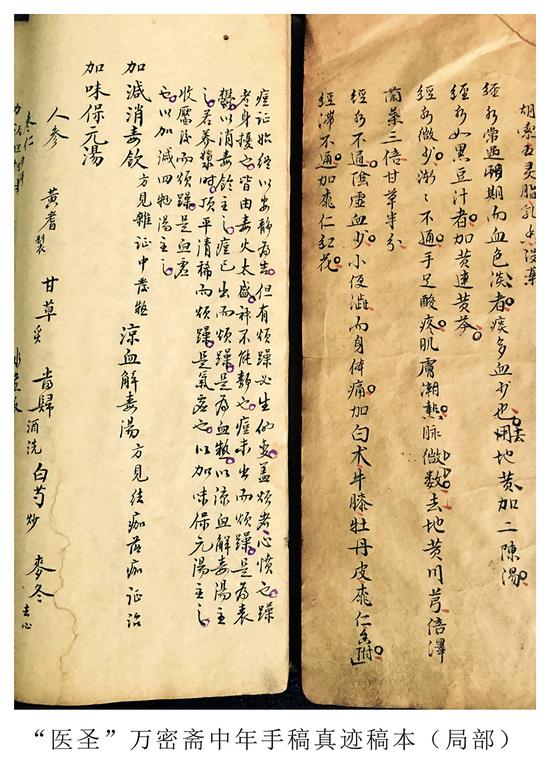 胡索五灵脂乳香没薬
经水常過期而血色淡者痰多血少也用去地黄加二陳湯
经水如黑豆汁者加黄連黄芩
经水微少渐々不通手足酸疼肌膚潮熱脉微数去地黄川芎倍澤
蘭葉三倍甘草半分
经水不通陰虚血少小便澁而身体痛加白术牛膝牡丹皮桃仁香附
经滞不通加桃仁红花
痘证始终以安静为吉但有烦躁必生他变盖烦者心愤也躁
者身擾也皆由毒火太盛神不能静也痘未出而烦躁是为表
鬱以消毒飲主之痘已出而烦躁是为血熱以凉血解毒湯主
之若养漿时顶平清稀而烦躁是氣虚也以加味保元湯主之
收靨後而烦躁是血虚
也以加減四物湯主之
加減消毒飲 方見雜证中發班 凉血解毒湯 方見结痂落痂证治
加味保元湯
人参 黄耆製 甘草炙 當歸酒洗 白芍炒 麥冬去心
枣仁
“医圣”万密斋中年手稿真迹稿本（局部）